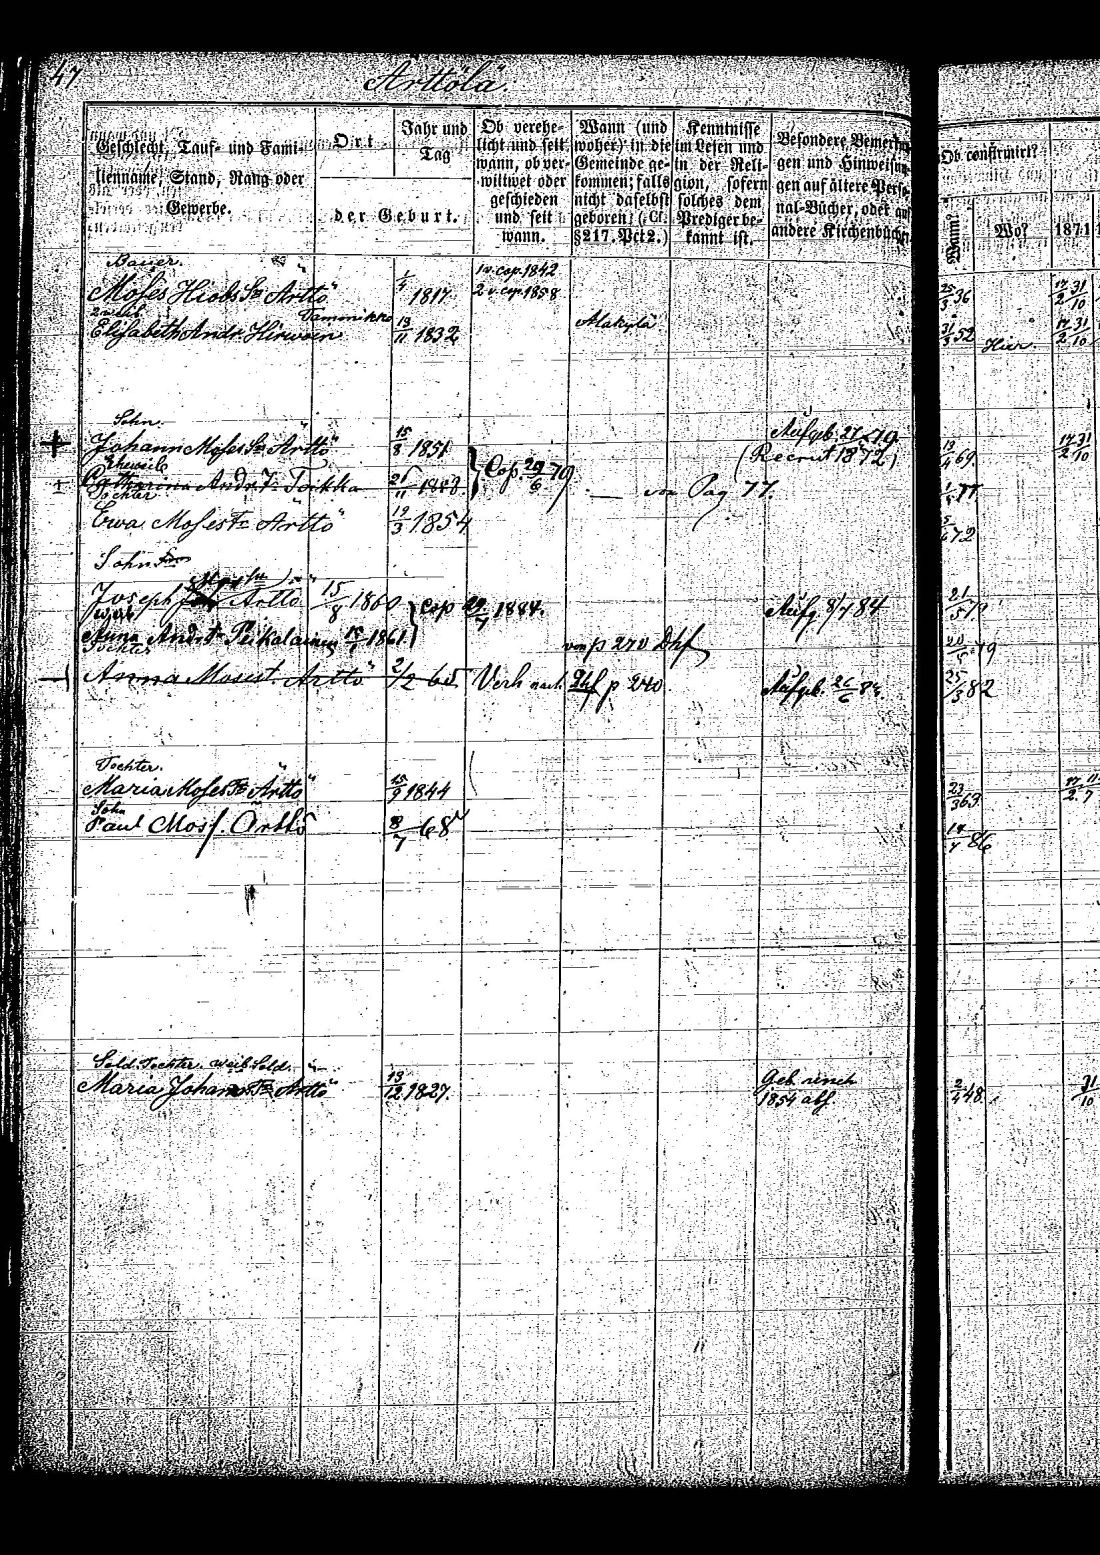 47.
Arttölä.
Geschlecht, Tauf- und Fami-
lienname, Stand, Rang oder
Gewerbe.
Ort
Jahr und
Tag
der Geburt.
Ob verehe-
licht und seit
wann, ob ver-
wittwet oder
geschieden
und seit
wann.
Wann (und
woher) in die
Gemeinde ge-
kommen; falls
nicht daselbst
geboren (Cf.
§217. Pct2.)
Kenntnisse
im Lesen und
in der Reli-
gion, sofern
solches dem
Prediger be-
kannt ist.
Besondere Bemerkun-
gen und Hinweisun-
gen auf ältere Perso-
nal-Bücher, oder auf
andere Kirchenbücher.
Ob confirmirt?
Wann?
Wo?
1871
Bauer.
1 v. cop. 1842
Moses Hiobs S. Ärttö 1817 2 v. cop. 1858 25/3 36 17/2 31/10
2 weib Tammikko
Elisabeth Andr. Hirwoin 13/11 1832 Alakylä 31/3 52 Hier 17/2 31/10
Sohn.
Johann Moses S. Ärttö 15/8 1851 Aufgeb. 79 (Recrut 1872) 69 17/2 31/10
Eheweib
Catharina Andr. T. Torkka Cop. 29/6 79 von Pag 77.
Tochter
Ewa Moses T. Ärttö 19/3 1854 72
Sohn
Joseph Ärttö 15/8 1860 Cop 29/4 1884. Aufg 8/4 84
Weib
Anna Andr. T. Peikalainen 1861 von p 270 Dhf
Tochter
Anna Moses T. Ärttö 2/2 65 Verh nach Dhf p 240. Aufgeb. 25/3 82
Tochter.
Maria Moses T. Ärttö 15/9 1844 23/3 63
Sohn
Paul Mos. Ärttö 8/7 68 86
Sold. Tochter. weib Sold.
Maria Johans T. Ärttö 13/12 1827. 1854 2/4 48. 31/10